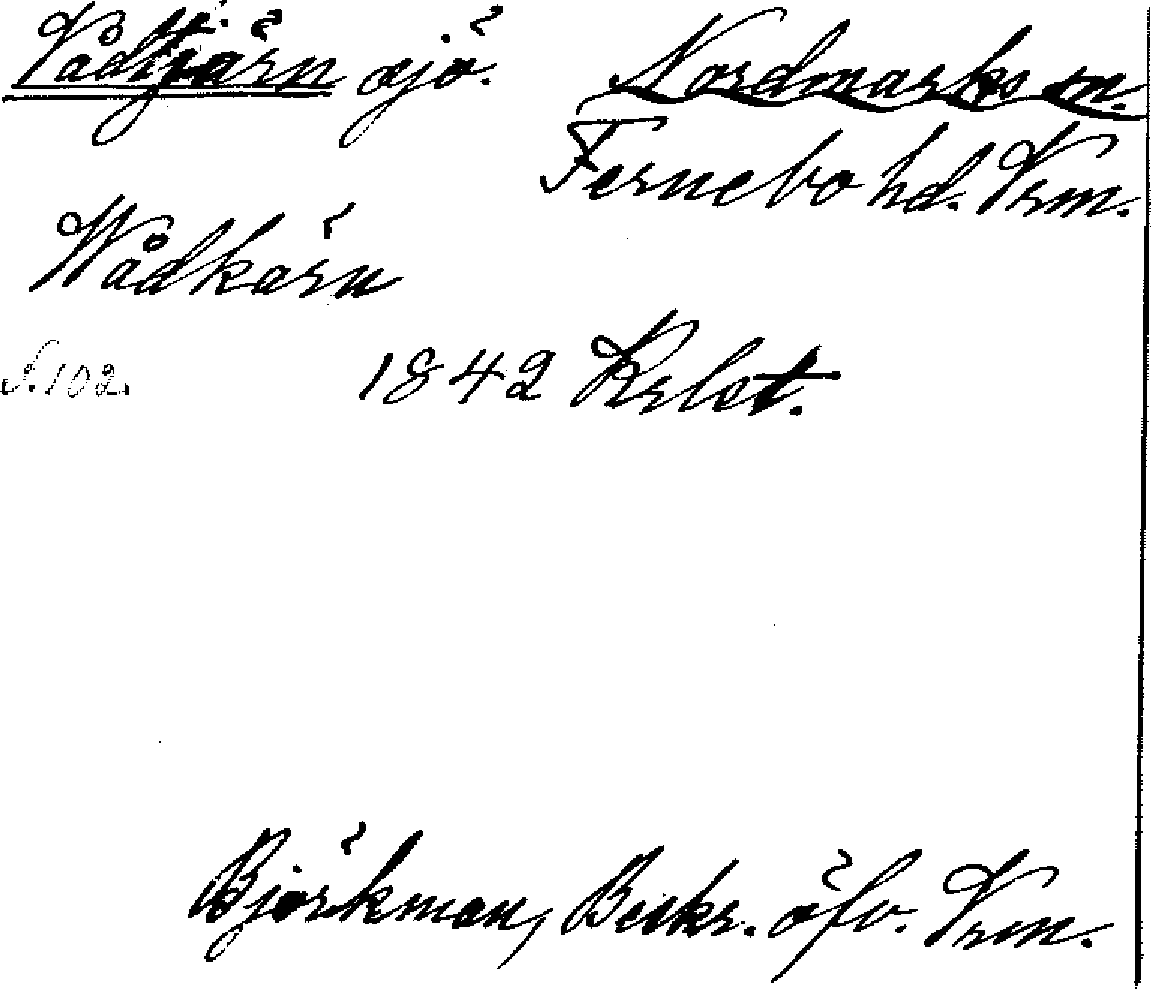 Vådtjärn sjö. Nordmarks sn.
Fernebo hd. Vrm.
Wådkärn
N 102.
1842 Krlst.
Björkman, Beskr. öfv. Vrm.